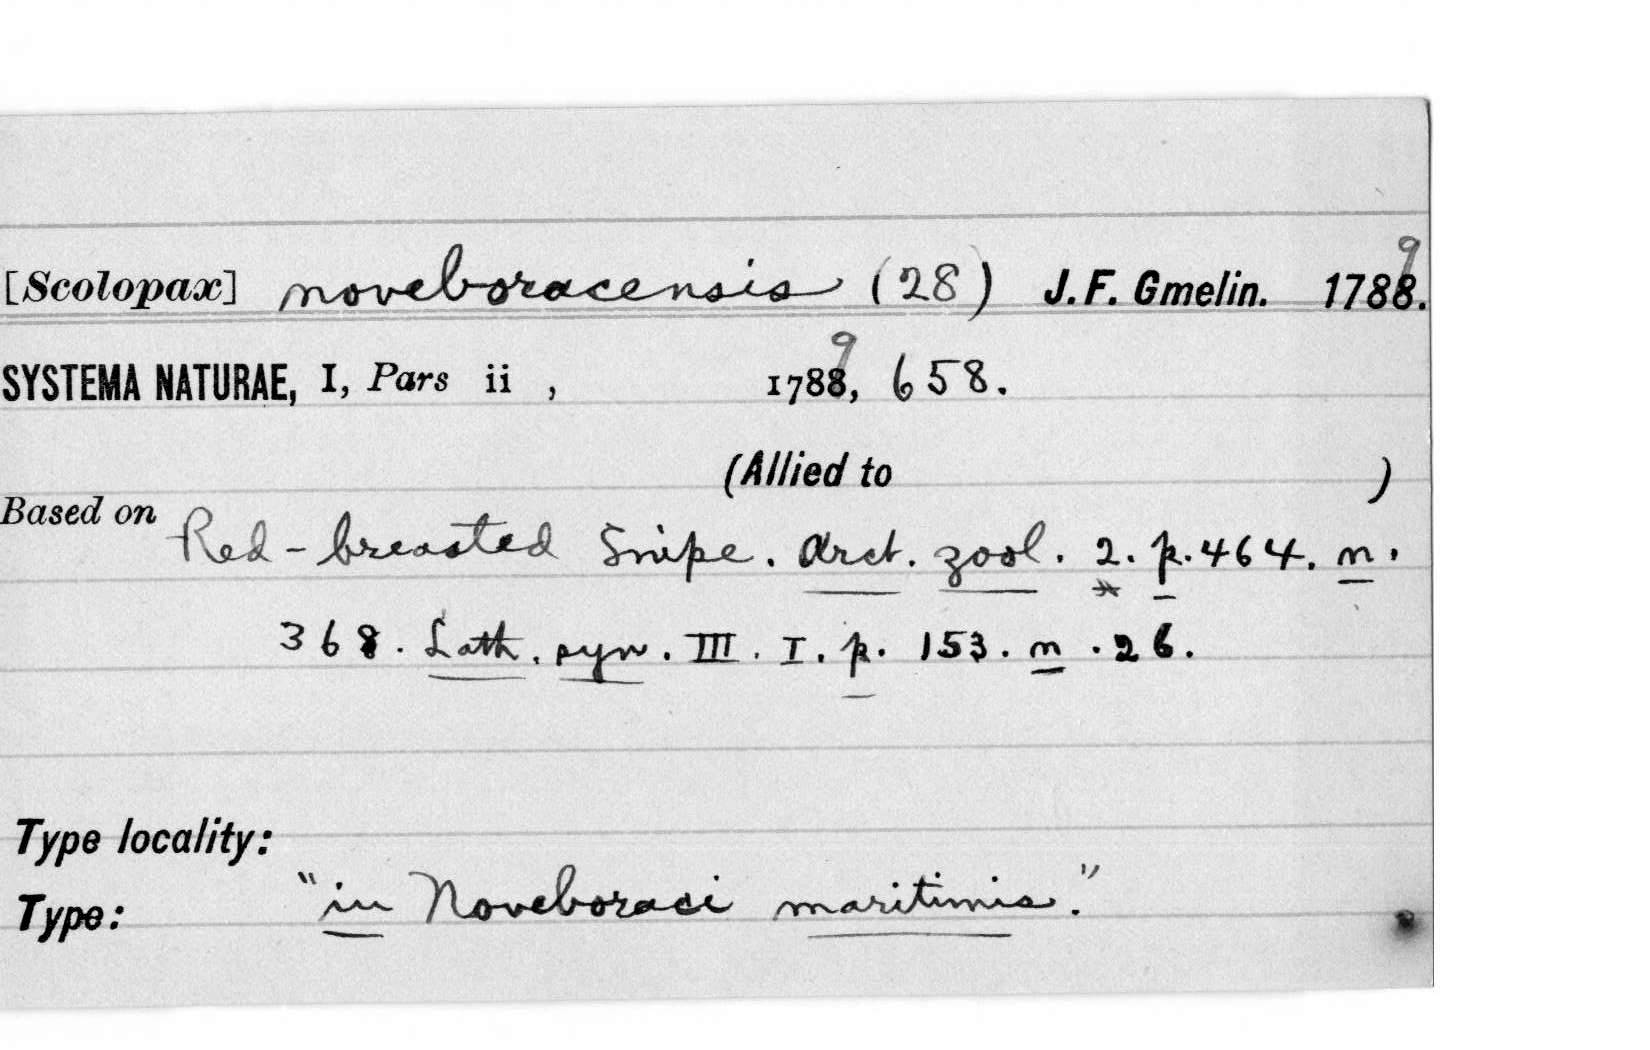 [Scolopax] noveboracensis (28) J. F. Gmelin. 1789.
SYSTEMA NATURAE, I, Pars ii , 1789, 658.
(Allied to )
Based on Red-breasted Snipe. Arct. zool. 2. p. 464. n.
368. Lath. syn. III. I. p. 153. n. 26.
Type locality:
Type: "in Noveboraci maritimis."